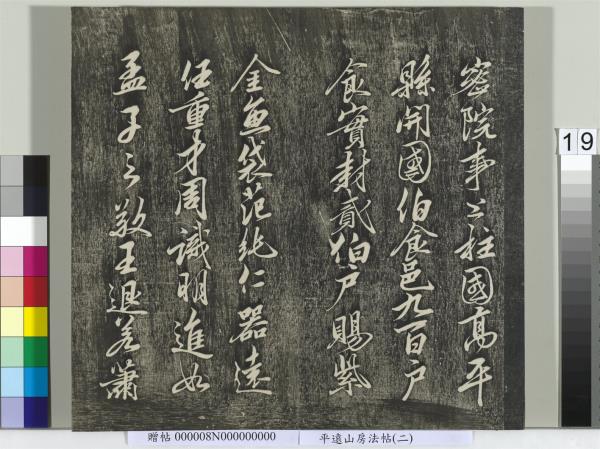 密院事上柱國高平
縣開國伯食邑九百户
食實封貳伯户賜紫
金魚袋范純仁器遠
任重才周識明進如
孟子之敬王退若蕭
19
贈帖 000008N000000000 平遠山房法帖(二)